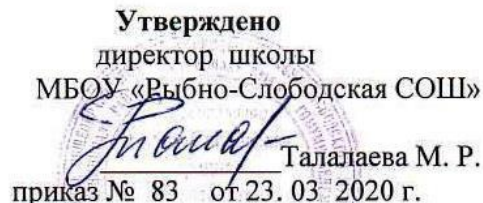 Утверждено
директор школы
МБОУ «Рыбно-Слободская СОШ»
Талалаева М. Р.
приказ № 83 от 23. 03 2020 г.